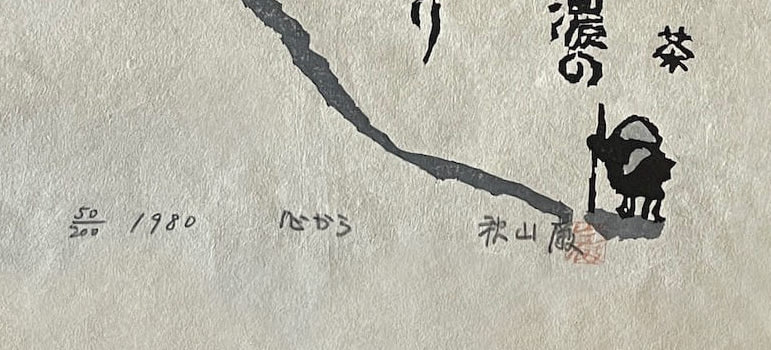 茶
濃の
り
50/200 1980 心から 秋山 巌